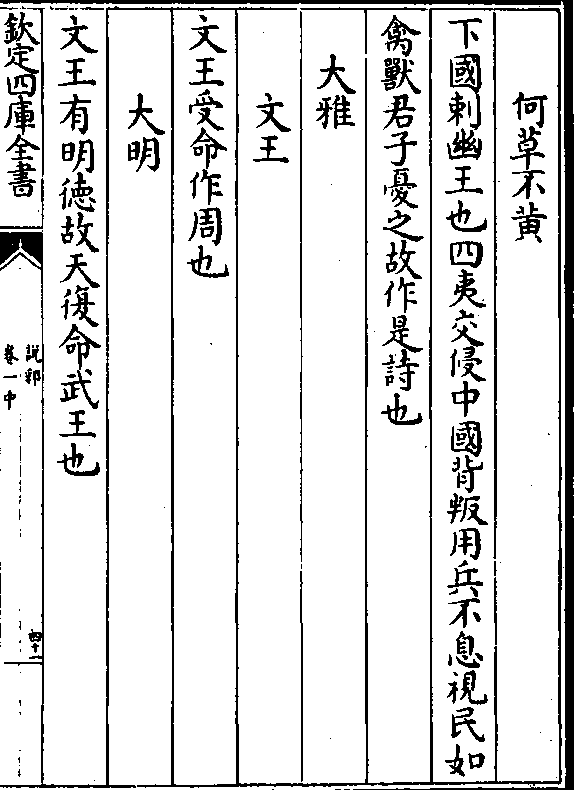 何草不黄
下國刺幽王也四夷交侵中國背叛用兵不息視民如
禽獸君子憂之故作是詩也
大雅
文王
文王受命作周也
大明
文王有明徳故天復命武王也
欽定四庫全書
説郛
卷一中
四十一